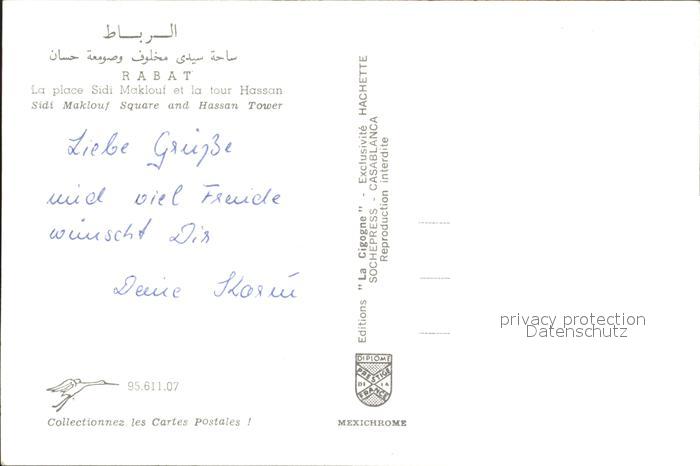 الـربـاط
ساحة سيدى مخلوف وصومعة حسان
RABAT
La place Sidi Maklouf et la tour Hassan
Sidi Maklouf Square and Hassan Tower
Liebe Grüße
und viel Freude
wünscht Dir
Deine Karin
95.611.07
Collectionnez les Cartes Postales !
Editions "La Cigogne" - Exclusivité HACHETTE
SOCHEPRESS - CASABLANCA
Reproduction interdite
DIPLOME
PRESTIGE
DI IA
FRANCE
MEXICHROME
privacy protection
Datenschutz